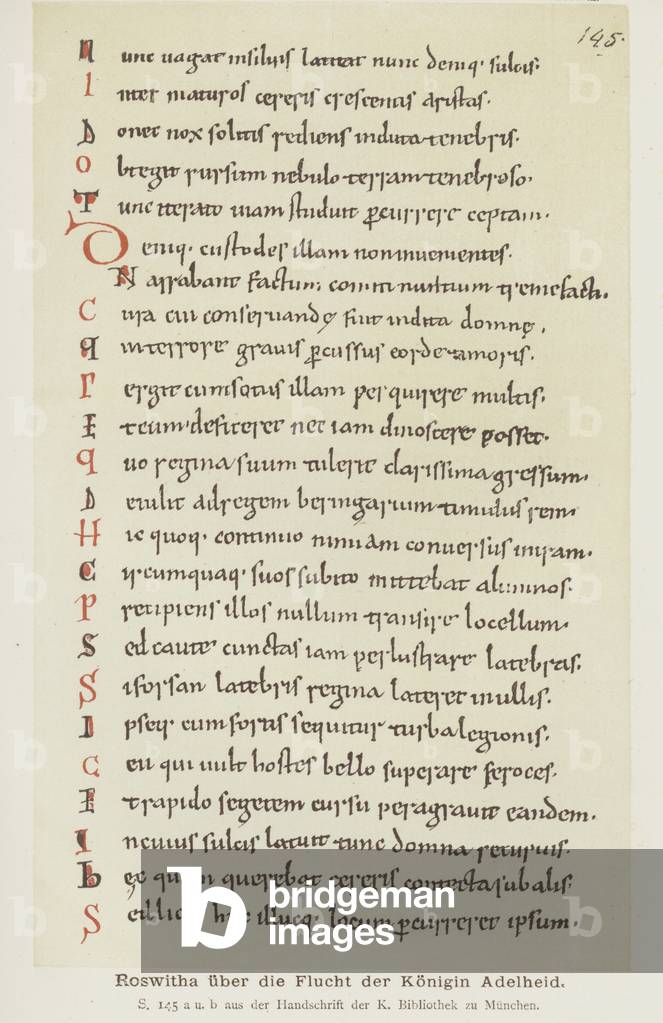 145.
Nunc vagat insilvis latitat nunc deniq· sulcis·
Inter maturos cereris crescentis aristas·
Donec nox solitis rediens induta tenebris·
Obtegit rursum nebulo terram tenebroso·
Tunc iterato viam studuit pcurrere ceptam·
Deniq· custodes illam non invenientes·
Narrabant factum comiti nimium tremefacti·
Cura cui conservandę fuit indita domnę·
Qui terrore gravis pcussus corde timoris·
Pergit cum sotiis illam perquirere multis·
Et cum deficeret nec iam dinoscere posset·
Quo regina suum tulerit clarissima gressum·
Detulit ad regem beringarium timidus rem·
Hic quoq· continuo nimiam conversus in iram·
Circumquaq· suos subito mittebat alumnos·
Precipiens illos nullum transire locellum·
Sed caute cunctas iam perlustrare latebras·
Si forsan latebris regina lateret in ullis·
Ipseq· cum fortis sequitur turba legionis·
Ceu qui vult hostes bello superare feroces·
Et rapido segetem cursu peragravit eandem·
In cuius sulcis latuit tunc domna recurvis·
Hęc quam querebat cereris contecta sub alis·
Sed licet huc illucq· locum pcurreret ipsum·
bridgeman
images
Roswitha über die Flucht der Königin Adelheid.
S. 145 a u. b aus der Handschrift der K. Bibliothek zu München.